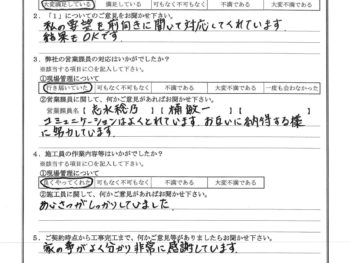 大変満足している 満足している 可もなく不可もなく 不満である 大変不満である
2．（1）についてのご意見をお聞かせ下さい。
私の要望を前向きに聞いて対応してくれています。
結果もOKです。
3．弊社の営業課員の対応はいかがでしたか？
※該当する項目に○を記入して下さい。
①現場管理について
行き届いていた 可もなく不可もなく 不満である 大変不満である 一度も会わなかった
②営業課員に関して、何かご意見があればお聞かせ下さい。
営業課員名【志水 】【楠 敏一】【 】
コミュニケーションはよくとれています。お互いに納得する様
に努力しています。
4．施工員の作業内容等はいかがでしたか？
※該当する項目に○を記入して下さい。
①現場管理について
良くやってくれた 可もなく不可もなく 不満である 大変不満である
②施工員に関して、何かご意見があればお聞かせ下さい。
あいさつがしっかりしていました。
5．ご契約時点から工事完工まで、何かご意見等がありましたらお聞かせ下さい。
家の事がよく分かり非常に感謝しています。